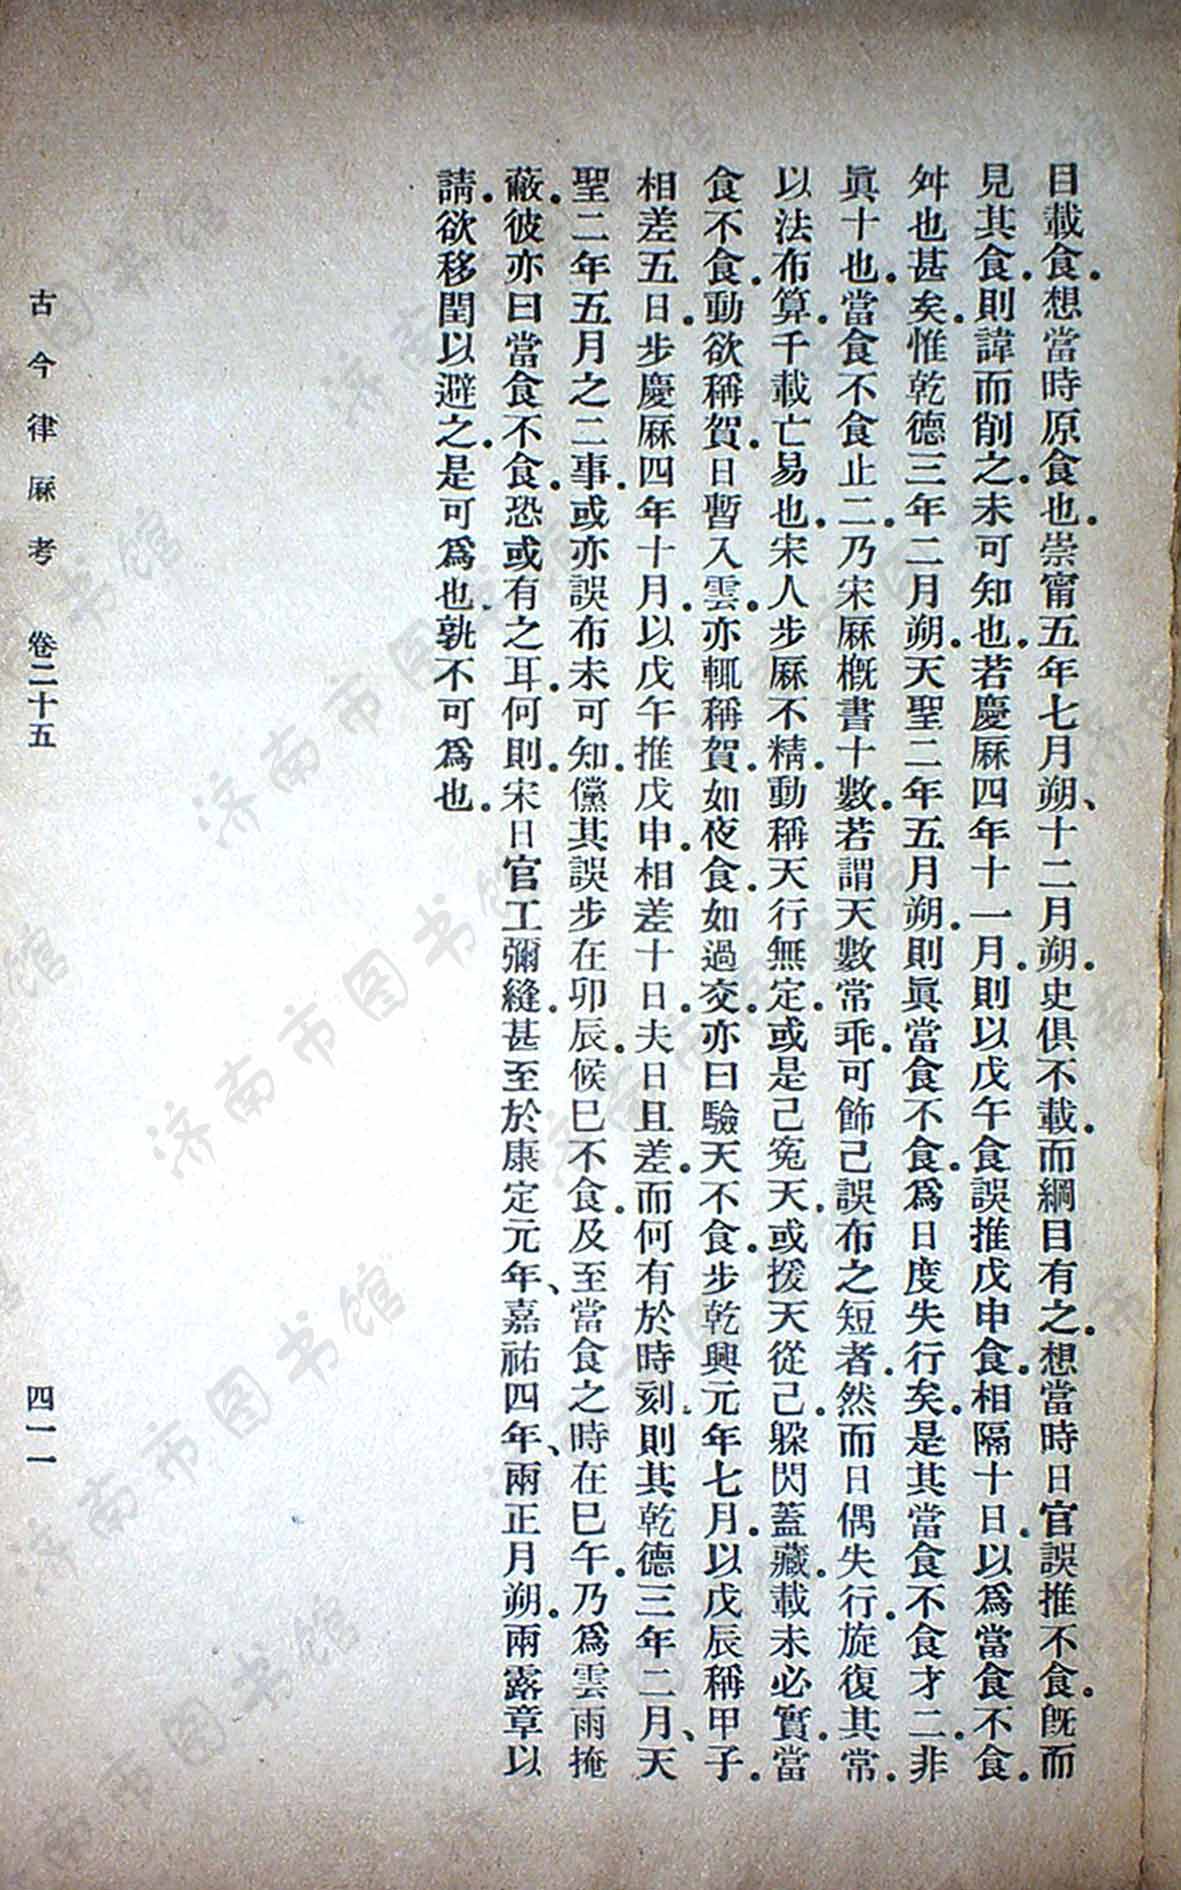 目載食。想當時原食也。崇甯五年七月朔、十二月朔。史俱不載。而綱目有之。想當時日官誤推不食。旣而
見其食。則諱而削之。未可知也。若慶厤四年十一月。則以戊午食誤推戊申食。相隔十日。以爲當食不食。
舛也甚矣。惟乾德三年二月朔。天聖二年五月朔。則眞當食不食。爲日度失行矣。是其當食不食才二。非
眞十也。當食不食止二。乃宋厤槪書十數。若謂天數常乖。可飾己誤布之短者。然而日偶失行。旋復其常。
以法布算。千載亡易也。宋人步厤不精。動稱天行無定。或是己冤天。或援天從己。躱閃蓋藏。載未必實。當
食不食。動欲稱賀。日暫入雲。亦輒稱賀。如夜食。如過交。亦曰驗天不食。步乾興元年七月。以戊辰稱甲子。
相差五日。步慶厤四年十月。以戊午推戊申。相差十日。夫日且差。而何有於時刻。則其乾德三年二月、天
聖二年五月之二事。或亦誤布未可知。儻其誤步在卯辰。候巳不食。及至當食之時在巳午。乃爲雲雨掩
蔽。彼亦曰當食不食。恐或有之耳。何則。宋日官工彌縫。甚至於康定元年、嘉祐四年、兩正月朔。兩露章以
請。欲移閏以避之。是可爲也。孰不可爲也。
古今律厤考 卷二十五
四一一
济南市图书馆